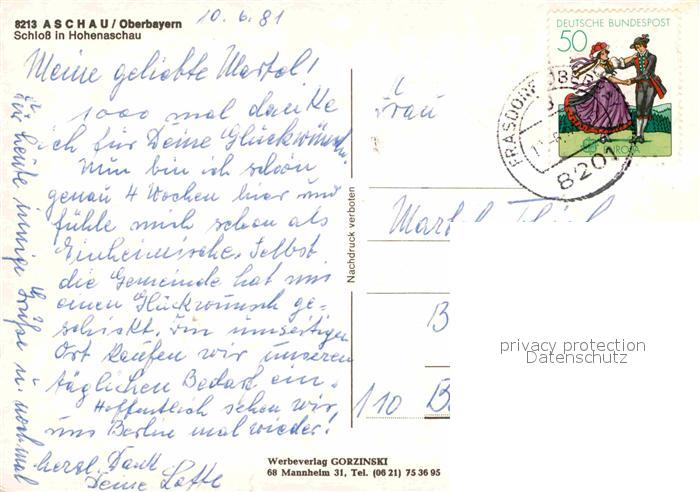 8213 ASCHAU / Oberbayern
Schloß in Hohenaschau
10.6.81
Meine geliebte Martel!
1000 mal danke
ich für Deine Glückwünsche.
Nun bin ich schon
genau 4 Wochen hier und
fühle mich schon als
Einheimische. Selbst
die Gemeinde hat mir
einen Glückwunsch ge-
schickt. Im umseitigen
Ort kaufen wir unseren
täglichen Bedarf ein.
Hoffentlich sehen wir
uns Berlin mal wieder!
herzl. Dank
Deine Lotte
Für heute innige Grüße u. nochmal
Nachdruck verboten
Frau
Martel
B
110 B
DEUTSCHE BUNDESPOST
50
EUROPA
FRASDORF
8201
privacy protection
Datenschutz
Werbeverlag GORZINSKI
68 Mannheim 31, Tel. (06 21) 75 36 95